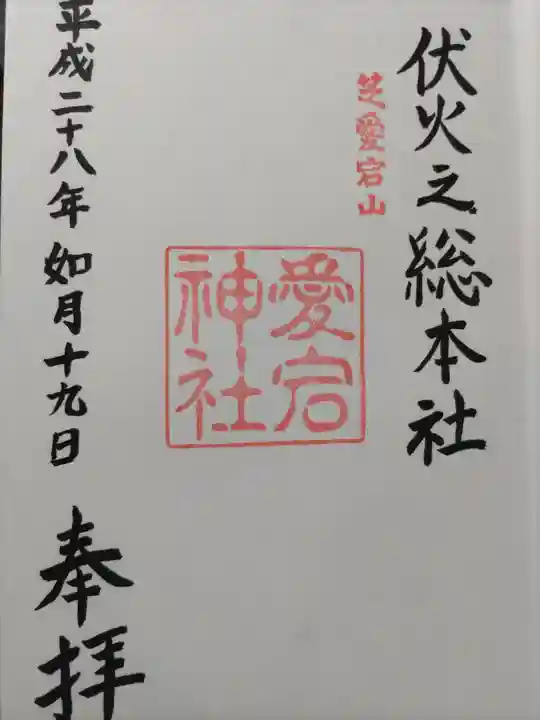 伏火之総本社
芝愛宕山
愛宕
神社
平成二十八年如月十九日
奉拝